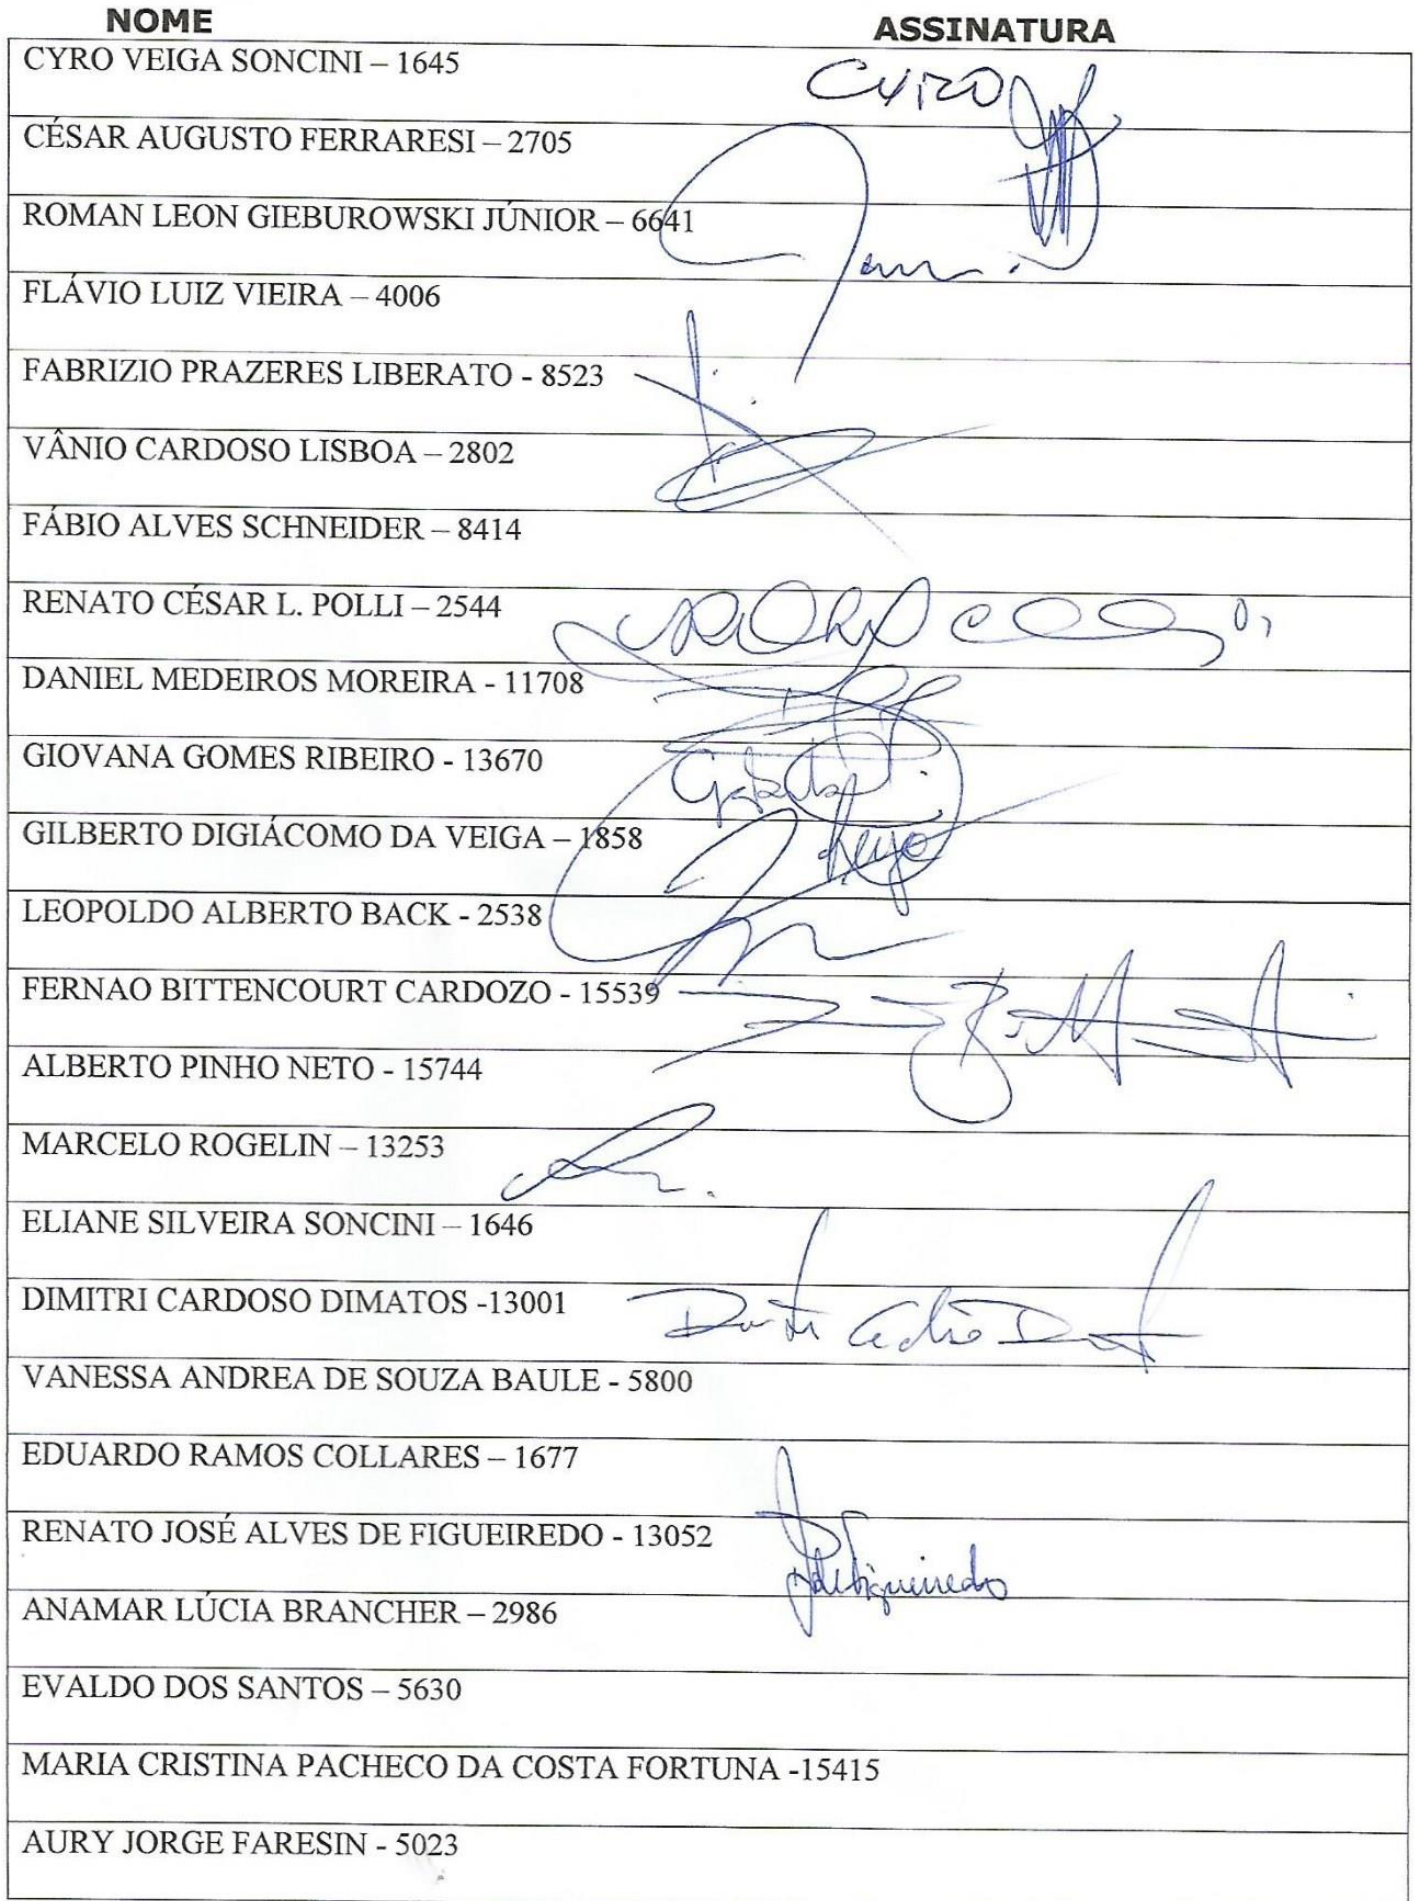 NOME ASSINATURA
CYRO VEIGA SONCINI – 1645 CYRO
CÉSAR AUGUSTO FERRARESI – 2705
ROMAN LEON GIEBUROWSKI JÚNIOR – 6641
FLÁVIO LUIZ VIEIRA – 4006
FABRIZIO PRAZERES LIBERATO - 8523
VÂNIO CARDOSO LISBOA – 2802
FÁBIO ALVES SCHNEIDER – 8414
RENATO CÉSAR L. POLLI – 2544
DANIEL MEDEIROS MOREIRA - 11708
GIOVANA GOMES RIBEIRO - 13670
GILBERTO DIGIÁCOMO DA VEIGA – 1858
LEOPOLDO ALBERTO BACK - 2538
FERNAO BITTENCOURT CARDOZO - 15539
ALBERTO PINHO NETO - 15744
MARCELO ROGELIN – 13253
ELIANE SILVEIRA SONCINI – 1646
DIMITRI CARDOSO DIMATOS -13001
VANESSA ANDREA DE SOUZA BAULE - 5800
EDUARDO RAMOS COLLARES – 1677
RENATO JOSÉ ALVES DE FIGUEIREDO - 13052
ANAMAR LÚCIA BRANCHER – 2986
EVALDO DOS SANTOS – 5630
MARIA CRISTINA PACHECO DA COSTA FORTUNA -15415
AURY JORGE FARESIN - 5023